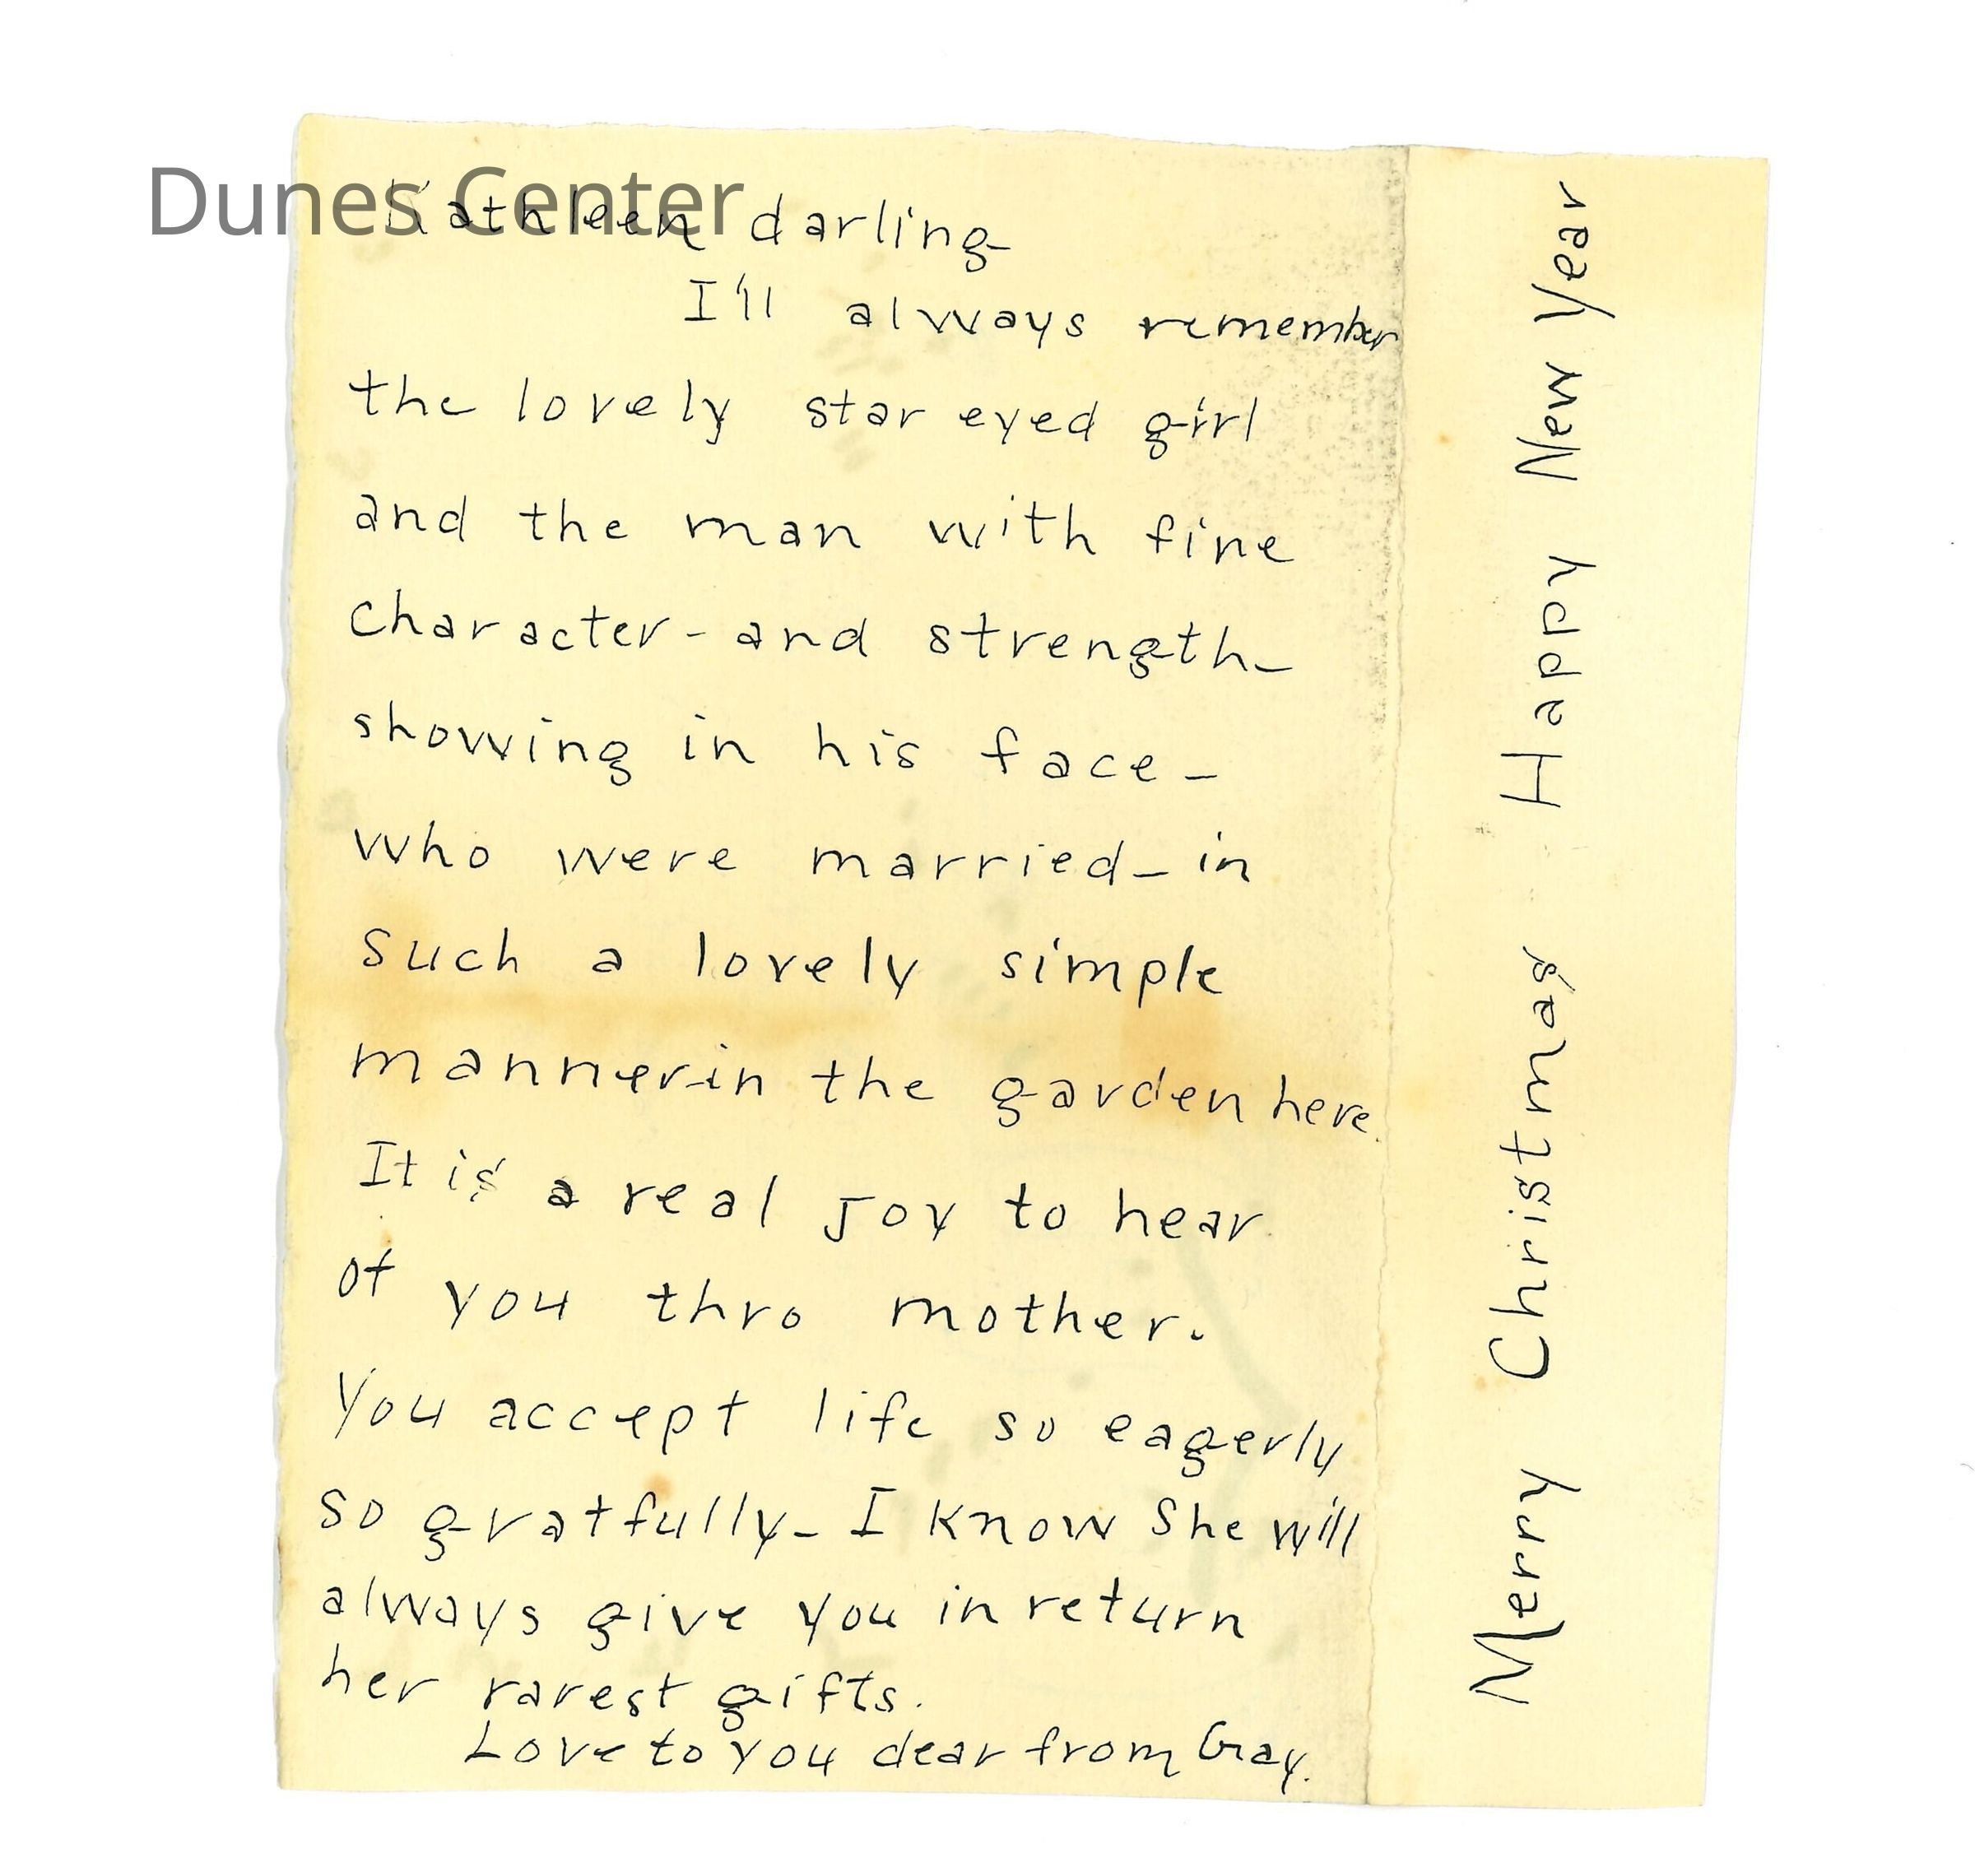 Dunes Center
Kathleen darling-
I'll always remember
the lovely star eyed girl
and the man with fine
character - and strength-
showing in his face -
who were married - in
such a lovely simple
manner-in the garden here.
It is a real Joy to hear
of you thro mother.
You accept life so eagerly
so gratfully - I know She will
always give you in return
her rarest gifts.
Love to you dear from Gray.
Merry Christmas Happy New Year